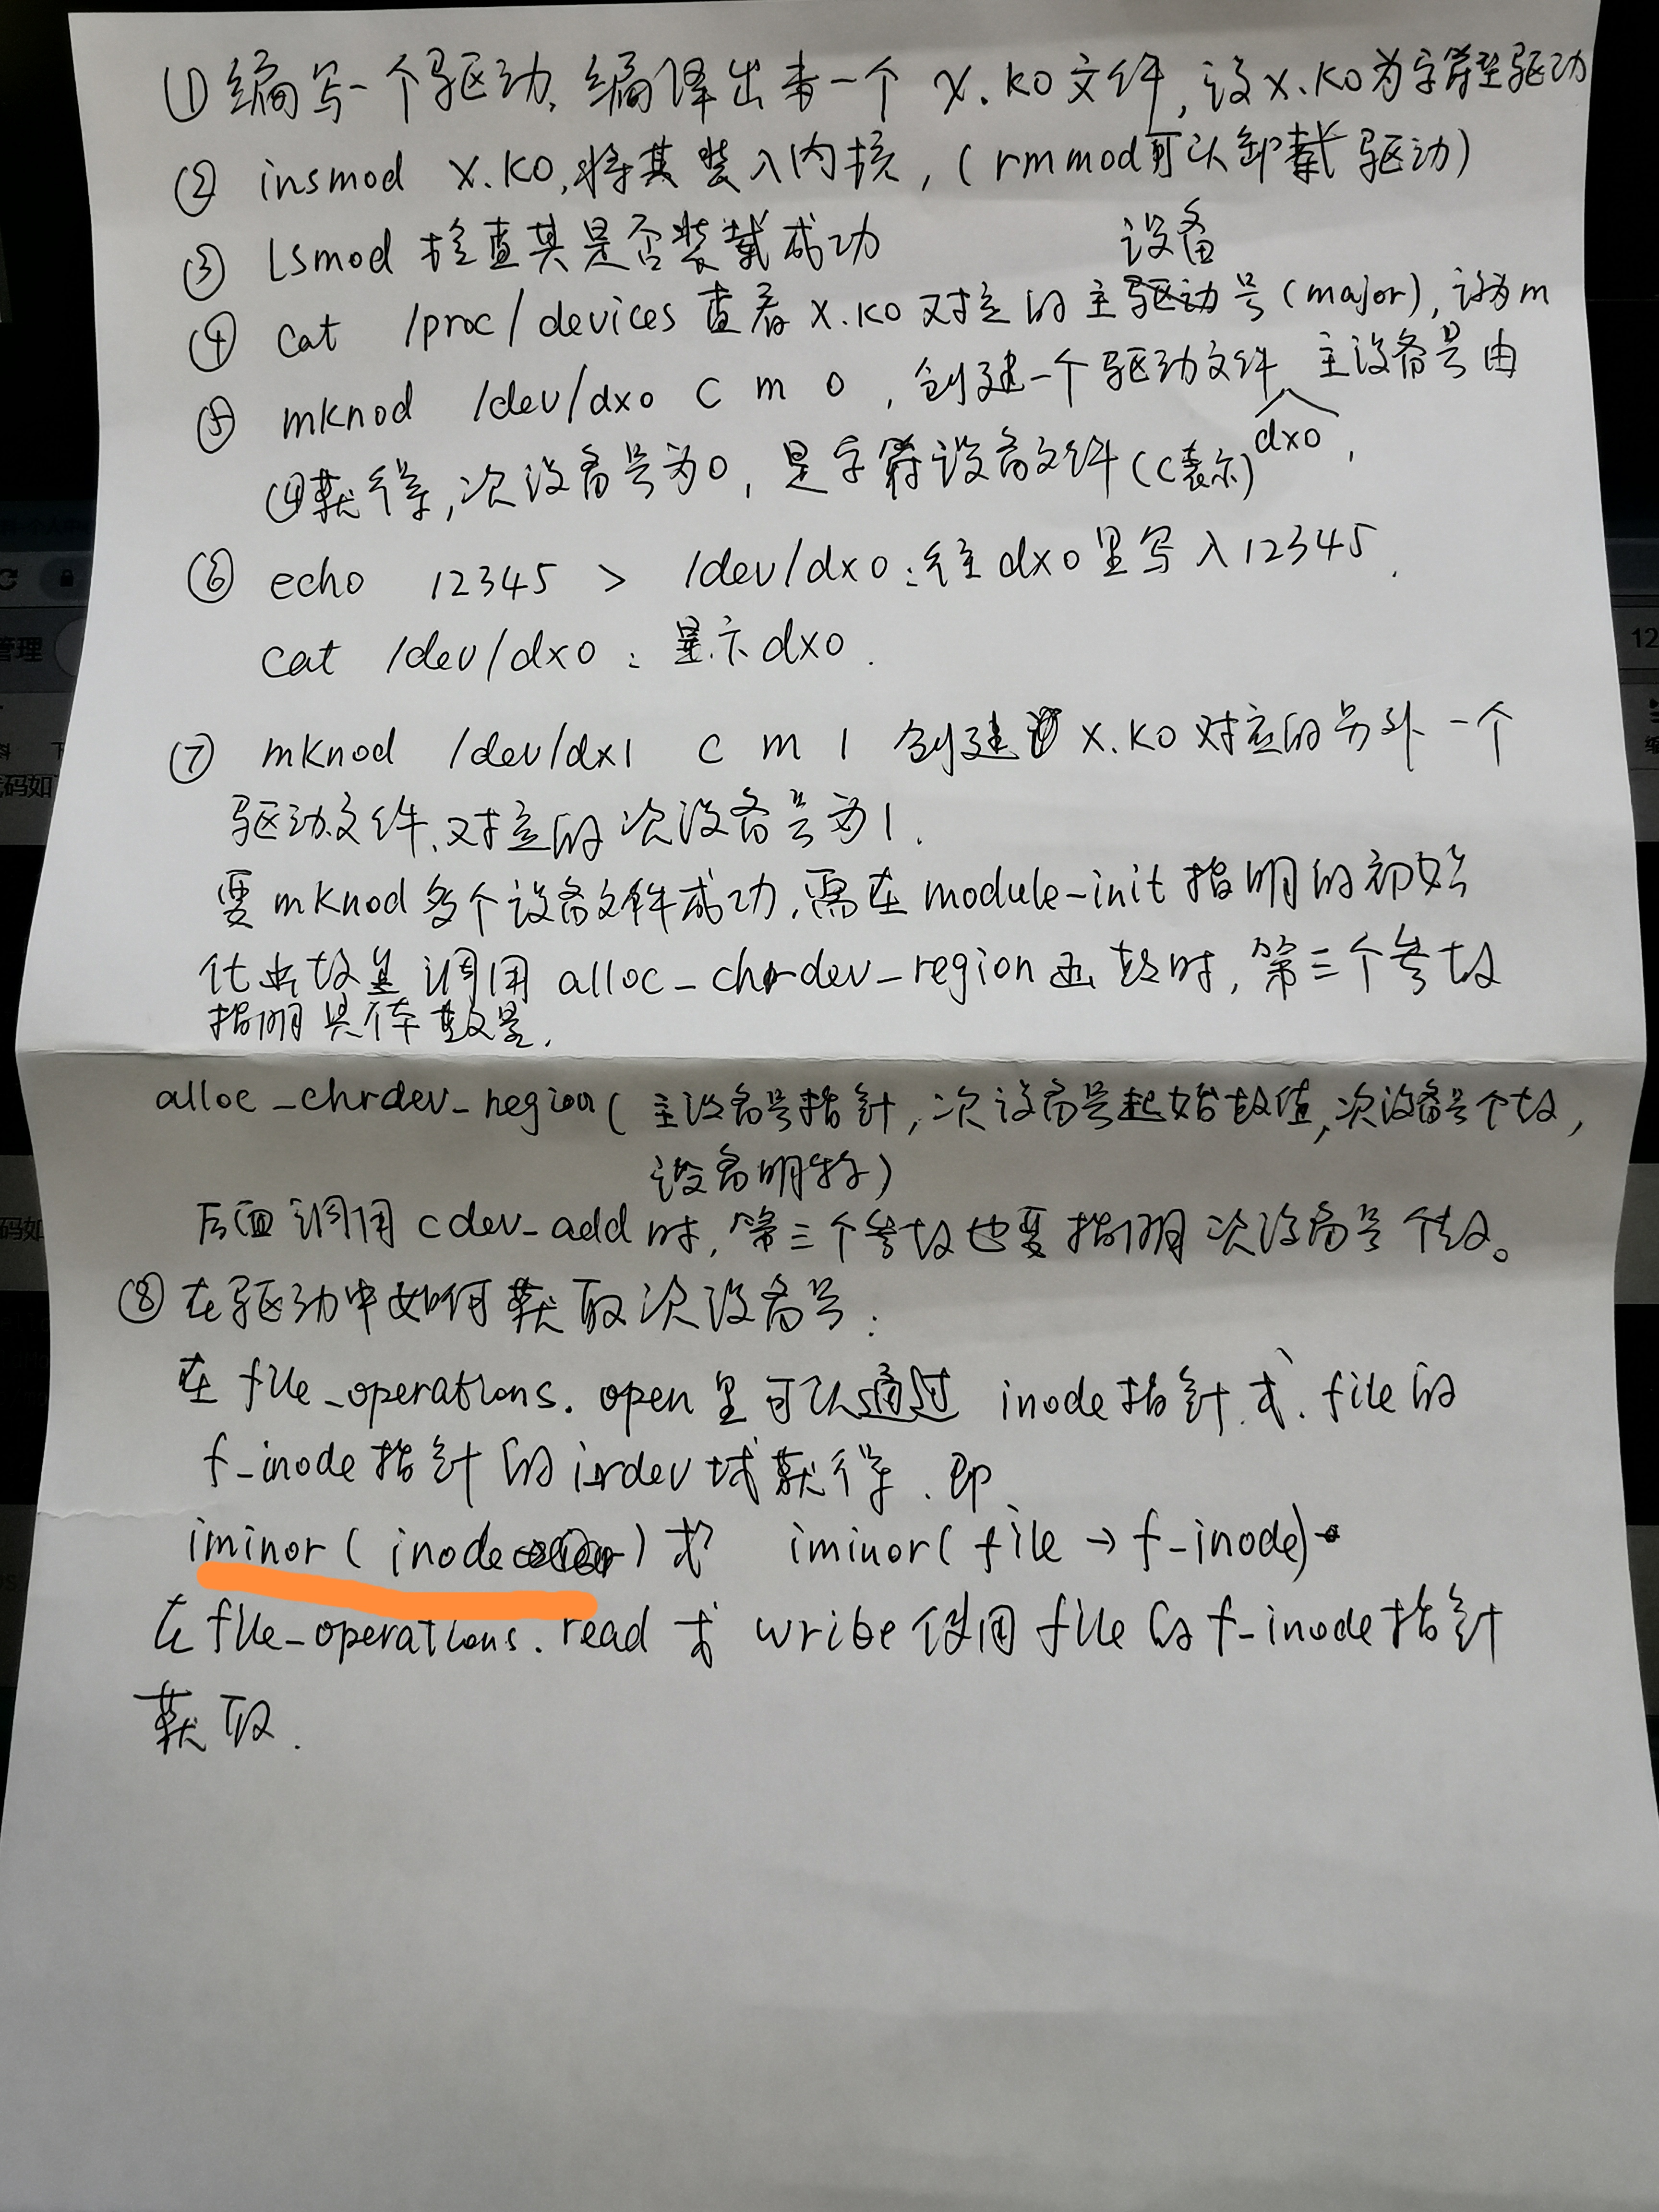 ①编写一个驱动,编译出来一个 x.ko文件,设x.ko为字符型驱动
② insmod x.ko,将其装入内核,(rmmod可以卸载驱动)
③ lsmod 检查其是否装载成功
设备
④ cat /proc/devices 查看 x.ko 对应的主驱动号(major),设为m
⑤ mknod /dev/dx0 c m 0 ,创建一个驱动文件 主设备号由
dx0
④获得,次设备号为0,是字符设备文件(c表示),
⑥ echo 12345 > /dev/dx0:往dx0里写入12345.
cat /dev/dx0:显示dx0.
⑦ mknod /dev/dx1 c m 1 创建 x.ko对应的另外一个
驱动文件,对应的次设备号为1.
要mknod多个设备文件成功,需在module-init指明的初始
化函数里调用 alloc_chrdev_region函数时,第三个参数
指明具体数量.
alloc_chrdev_region(主设备号指针,次设备号起始数值,次设备号个数,
设备明称)
后面调用cdev_add时,第三个参数也要指明次设备号个数。
⑧在驱动中如何获取次设备号:
在file_operations.open里可以通过 inode指针或file的
f_inode指针的irdev域获得.即
iminor(inode)或 iminor(file→f_inode)
在file_operations.read或 write使用file的f_inode指针
获取.
管理
12
码如
码如